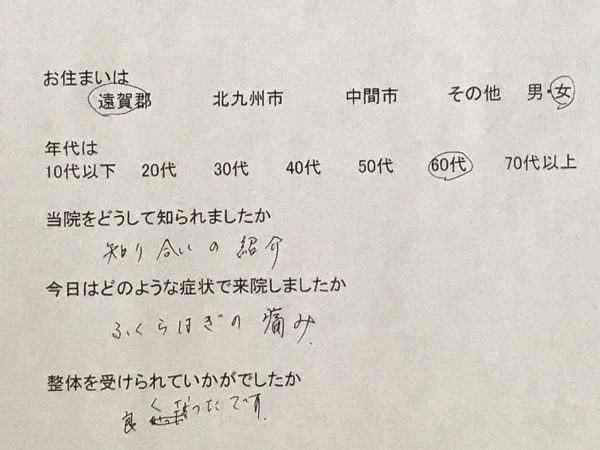 お住まいは
遠賀郡 北九州市 中間市 その他 男・女
年代は
10代以下 20代 30代 40代 50代 60代 70代以上
当院をどうして知られましたか
知り合いの紹介
今日はどのような症状で来院しましたか
ふくらはぎの痛み
整体を受けられていかがでしたか
良くなったです。